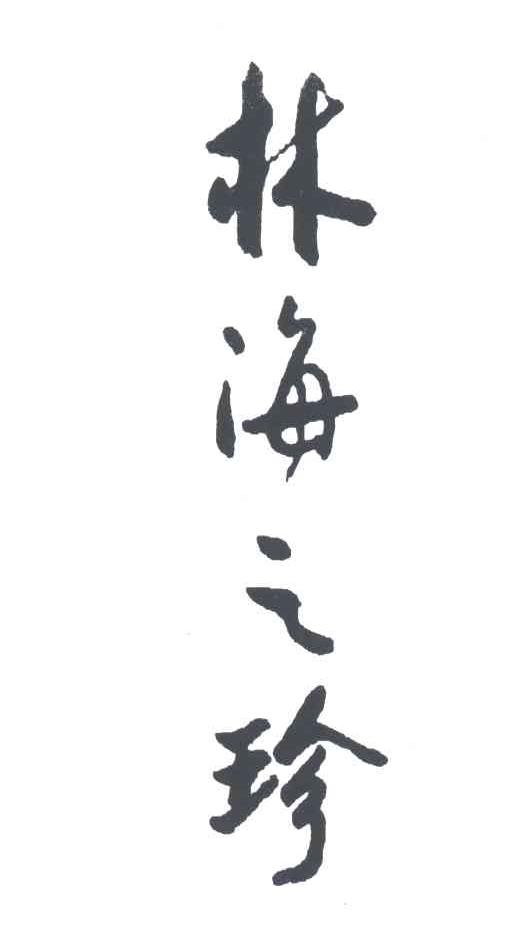 林海之珍